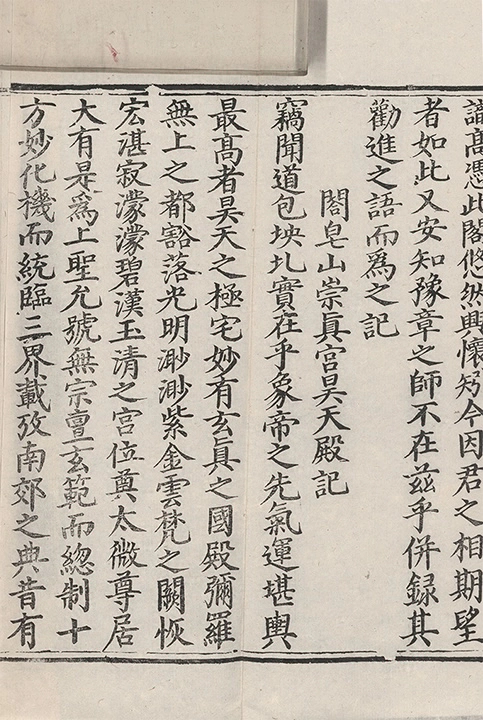 識髙憑此閣悠然興懷矧今因君之相期望
者如此又安知豫章之師不在兹乎併録其
勸進之語而爲之記
閤皂山崇眞宮昊天殿記
竊聞道包坱圠實在乎象帝之先氣運堪輿
最髙者昊天之極宅妙有玄眞之國殿彌羅
無上之都豁落光明渺渺紫金雲梵之闕恢
宏湛寂濛濛碧漢玉清之宮位奠太微尊居
大有是爲上聖允號無宗亶玄範而緫制十
方妙化機而統臨三界載攷南郊之典昔有